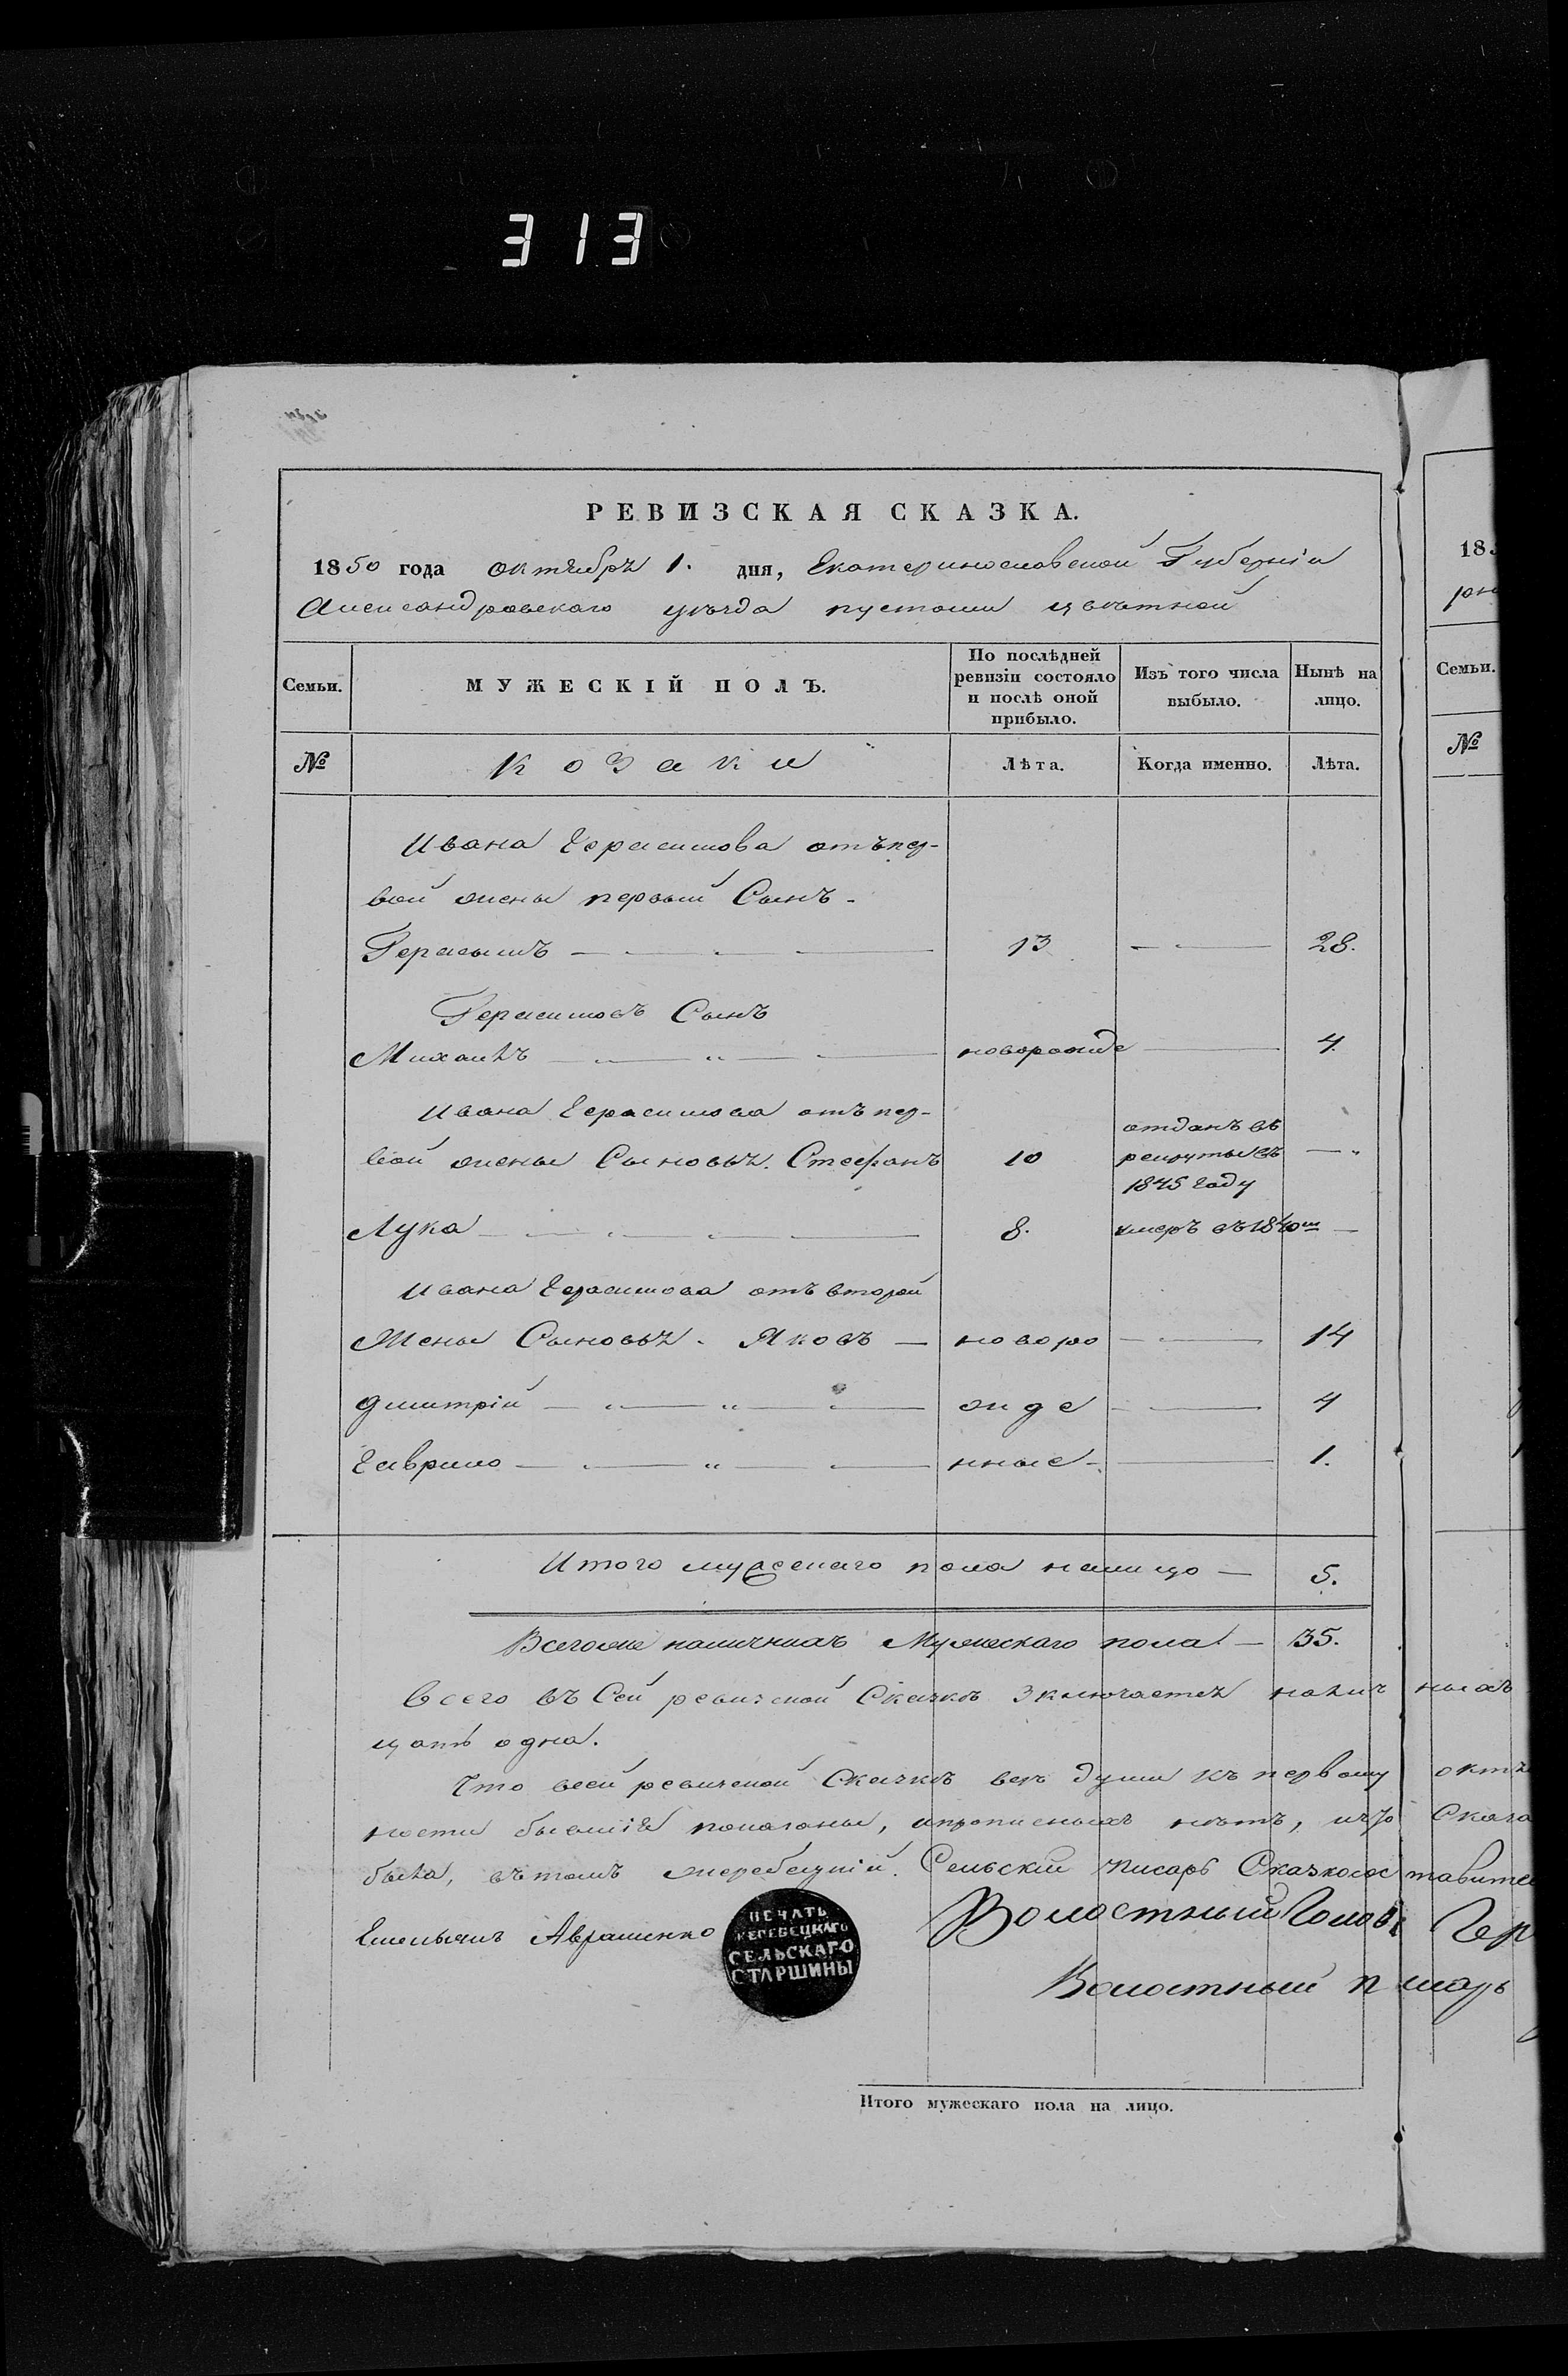 313
РЕВИЗСКАЯ СКАЗКА.
1850 года октября 1. дня, Екатеринославской Губерніи
Александровскаго уѣзда пустоши цвѣтной
Семьи.
МУЖЕСКІЙ ПОЛЪ.
По послѣдней ревизіи состояло и послѣ оной прибыло.
Изъ того числа выбыло.
Нынѣ на лицо.
№
Козаки
Лѣта.
Когда именно.
Лѣта.
Ивана Герасимова отъ пер-
вой жены первый Сынъ -
Герасымъ 13 28.
Герасимовъ Сынъ
Михаилъ новорожде 4.
Ивана Герасимова отъ пер-
вой жены Сыновья. Стефанъ 10 отданъ въ рекруты въ 1845 году
Лука 8. умеръ въ 1840м
Ивана Герасимова отъ второй
Жены Сыновья. Яковъ новоро 14
Дмитрій жде 4
Гаврило нные 1.
Итого мужескаго пола налицо 5.
Всегоже наличныхъ Мужескаго пола 35.
Всего въ Сей ревизской Сказкѣ налич ныхъ
цать одна.
Что всей ревизской Сказкѣ всѣ души къ первому октя
ности бывшія показаны, прописныхъ нѣтъ, Сказа
была, въ томъ жеребецкій. Сельскій писарь Сказкосоставител
Емельянъ Авраменко
ПЕЧАТЬ
ЖЕРЕБЕЦКАГО
СЕЛЬСКАГО
СТАРШИНЫ
Волостный Голова Гер
Волостный писарь
Итого мужескаго пола на лицо.
Семьи.
№